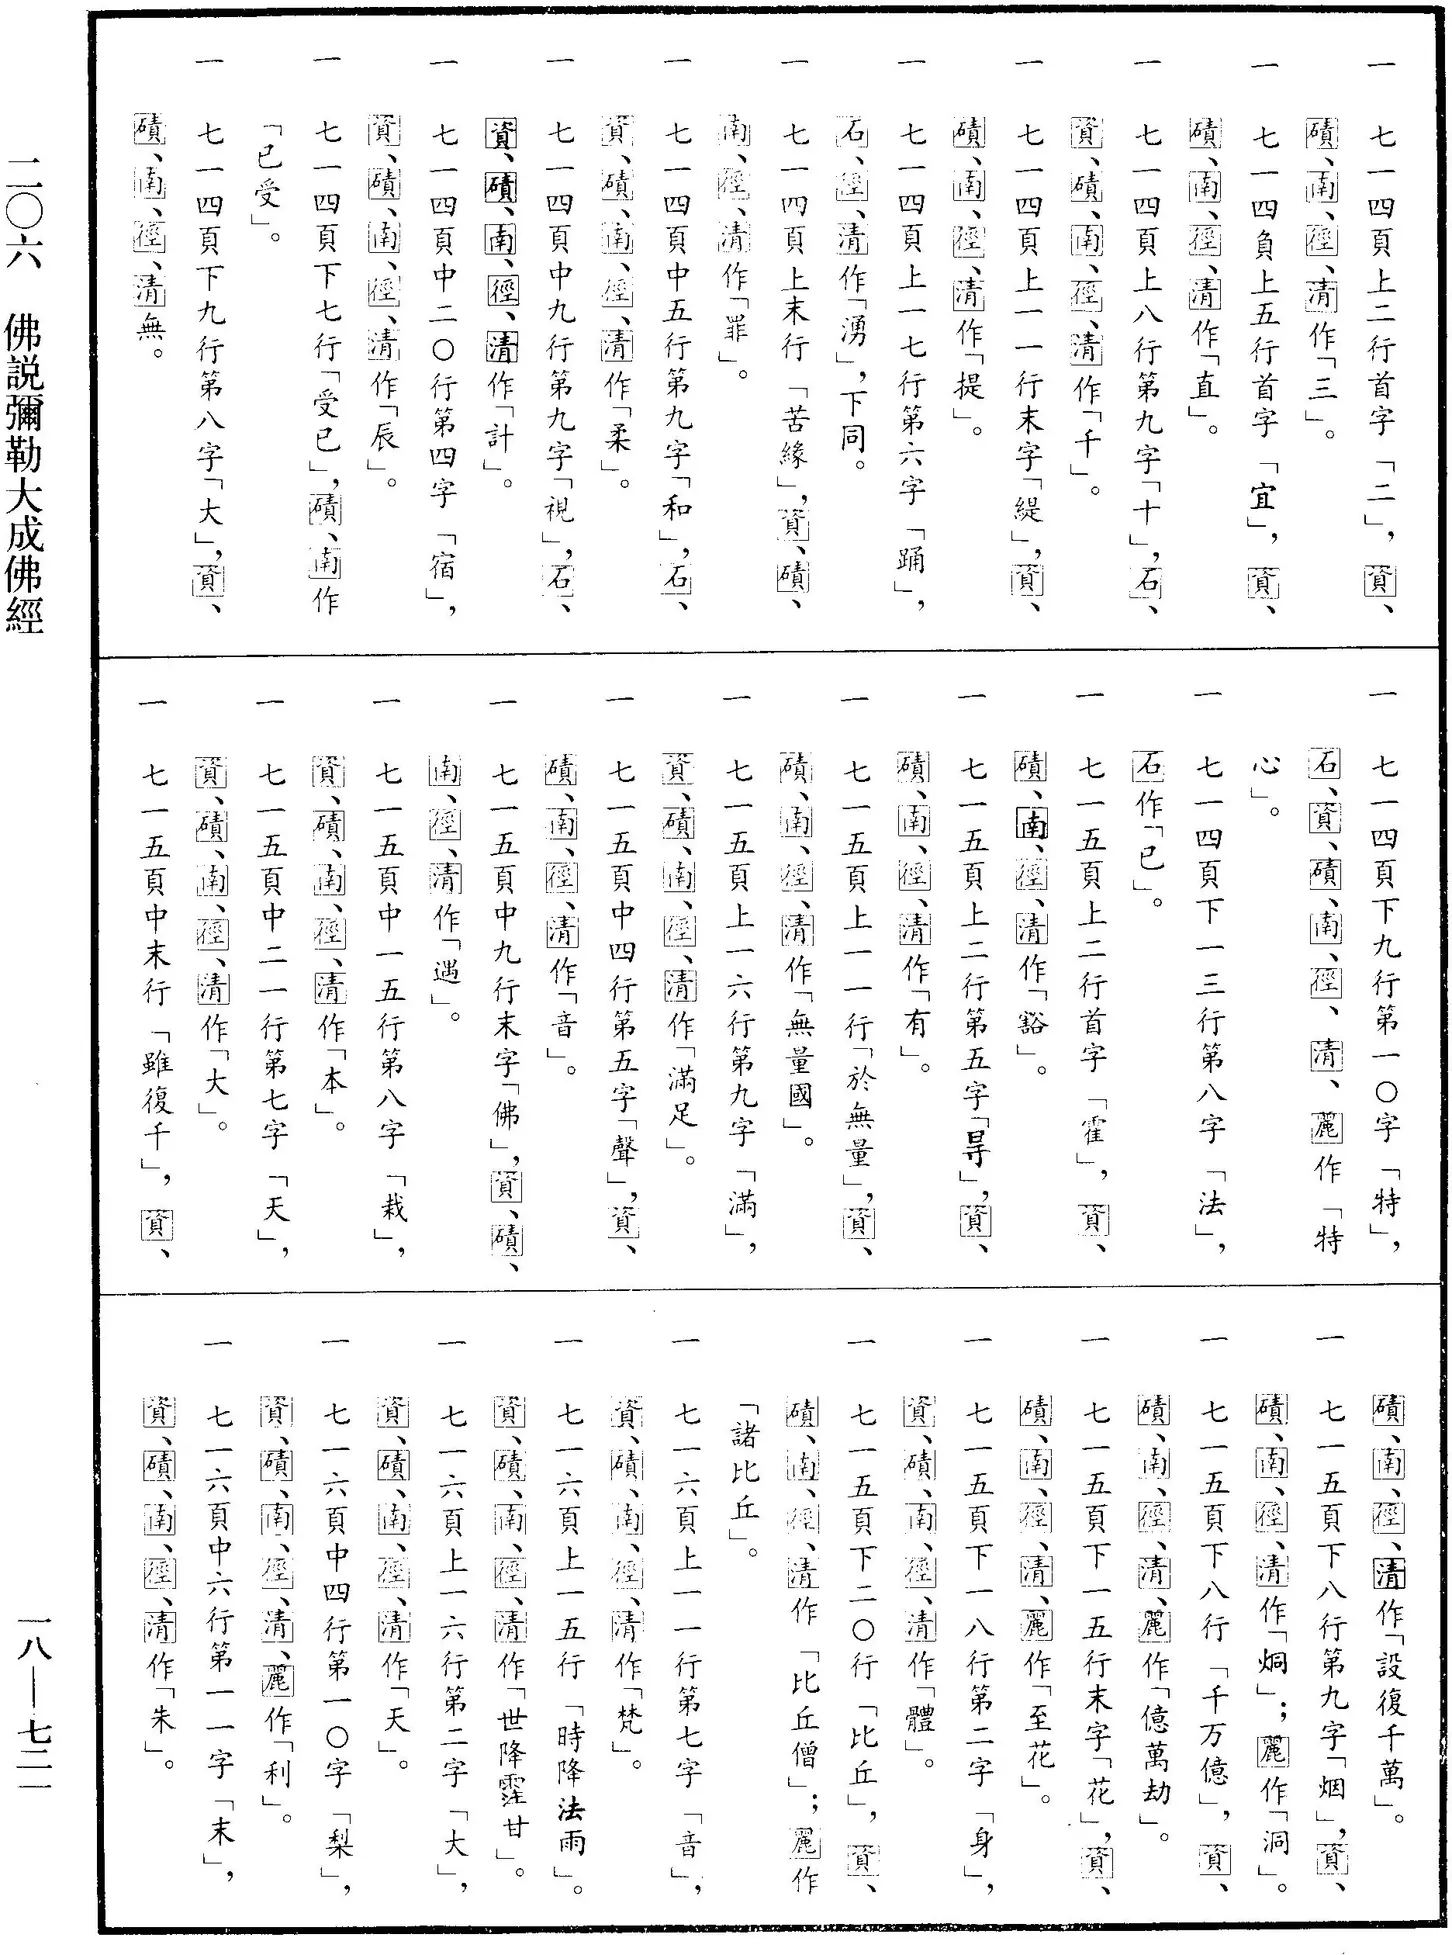 一　七一四頁上二行首字「二」，資、
磧、南、徑、清作「三」。
一　七一四負上五行首字「宜」，資、
磧、南、徑、清作「直」。
一　七一四頁上八行第九字「十」，石、
資、磧、南、徑、清作「千」。
一　七一四頁上一一行末字「緹」，資、
磧、南、徑、清作「提」。
一　七一四頁上一七行第六字「踊」，
石、徑、清作「湧」，下同。
一　七一四頁上末行「苦緣」，資、磧、
南、徑、清作「罪」。
一　七一四頁中五行第九字「和」，石、
資、磧、南、徑、清作「柔」。
一　七一四頁中九行第九字「視」，石、
資、磧、南、徑、清作「計」。
一　七一四頁中二〇行第四字「宿」，
資、磧、南、徑、清作「辰」。
一　七一四頁下七行「受已」，磧、南作
「已受」。
一　七一四頁下九行第八字「大」，資、
磧、南、徑、清無。
一　七一四頁下九行第一〇字「特」，
石、資、磧、南、徑、清、麗作「特
心」。
一　七一四頁下一三行第八字「法」，
石作「已」。
一　七一五頁上二行首字「霍」，資、
磧、南、徑、清作「豁」。
一　七一五頁上二行第五字「㝵」，資、
磧、南、徑、清作「有」。
一　七一五頁上一一行「於無量」，資、
磧、南、徑、清作「無量國」。
一　七一五頁上一六行第九字「滿」，
資、磧、南、徑、清作「滿足」。
一　七一五頁中四行第五字「聲」，資、
磧、南、徑、清作「音」。
一　七一五頁中九行末字「佛」，資、磧、
南、徑、清作「遇」。
一　七一五頁中一五行第八字「栽」，
資、磧、南、徑、清作「本」。
一　七一五頁中二一行第七字「天」，
資、磧、南、徑、清作「大」。
一　七一五頁中末行「雖復千」，資、
磧、南、徑、清作「設復千萬」。
一　七一五頁下八行第九字「烟」，資、
磧、南、徑、清作「烔」；麗作「洞」。
一　七一五頁下八行「千万億」，資、
磧、南、徑、清、麗作「億萬劫」。
一　七一五頁下一五行末字「花」，資、
磧、南、徑、清、麗作「至花」。
一　七一五頁下一八行第二字「身」，
資、磧、南、徑、清作「體」。
一　七一五頁下二〇行「比丘」，資、
磧、南、徑、清作「比丘僧」；麗作
「諸比丘」。
一　七一六頁上一一行第七字「音」，
資、磧、南、徑、清作「梵」。
一　七一六頁上一五行「時降法雨」。
資、磧、南、徑、清作「世降霔甘」。
一　七一六頁上一六行第二字「大」，
資、磧、南、徑、清作「天」。
一　七一六頁中四行第一〇字「梨」，
資、磧、南、徑、清、麗作「利」。
一　七一六頁中六行第一一字「末」，
資、磧、南、徑、清作「朱」。
二〇六　佛説彌勒大成佛經
一八—七二一